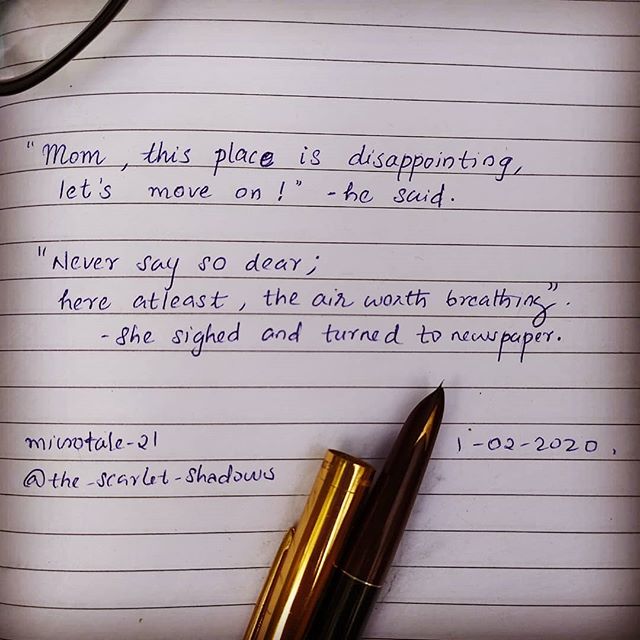 "Mom, this place is disappointing,
let's move on!" - he said.
"Never say so dear;
here atleast, the air worth breathing".
- She sighed and turned to newspaper.
microtale-21
1-02-2020.
@the_scarlet_shadows